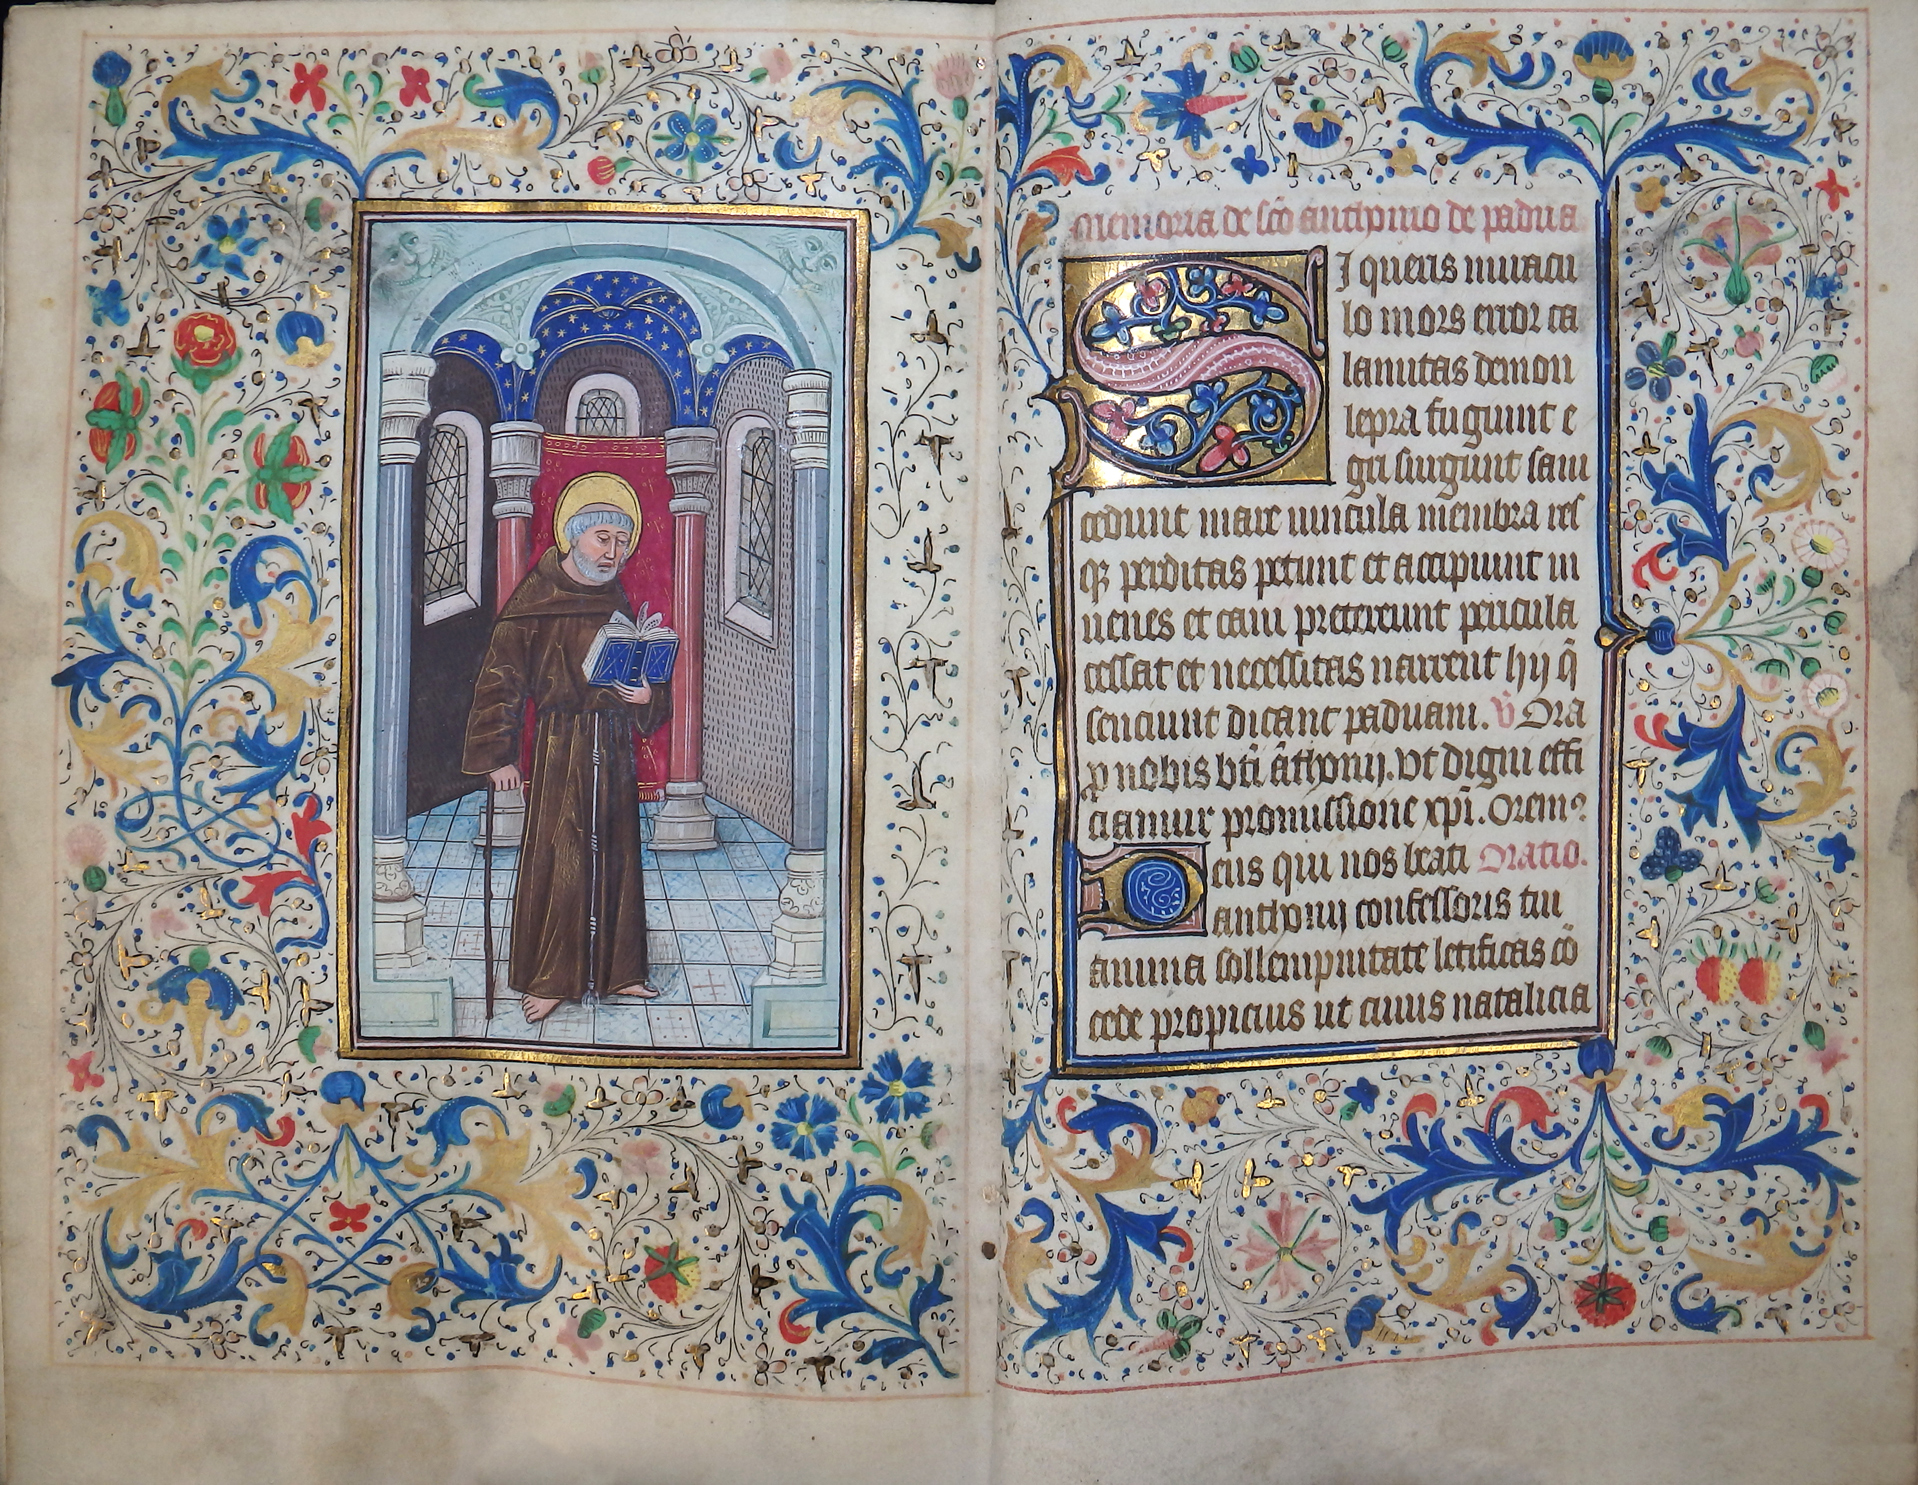 Memoria de sc̄o anthonio de padua
SI queris miracu
lo mors error ca
lamitas demon
lepra fugiunt e
gri surgunt sani
cedunt mare uincula membra res
qꝫ perditas petunt et accipiunt iu
uenes et cani pretereunt pericula
cessat et necessitas narrent hij q̄
senciunt dicant paduani. v̄ Ora
ꝓ nobis bt̄i ān̄thonij. Vt digni effi
ciamur promissione xp̄i. Orem⁹
Deus qui nos beati Oratio.
anthonij confessoris tui
annua sollempnitate letificas cō
cede propicius ut cuius natalicia